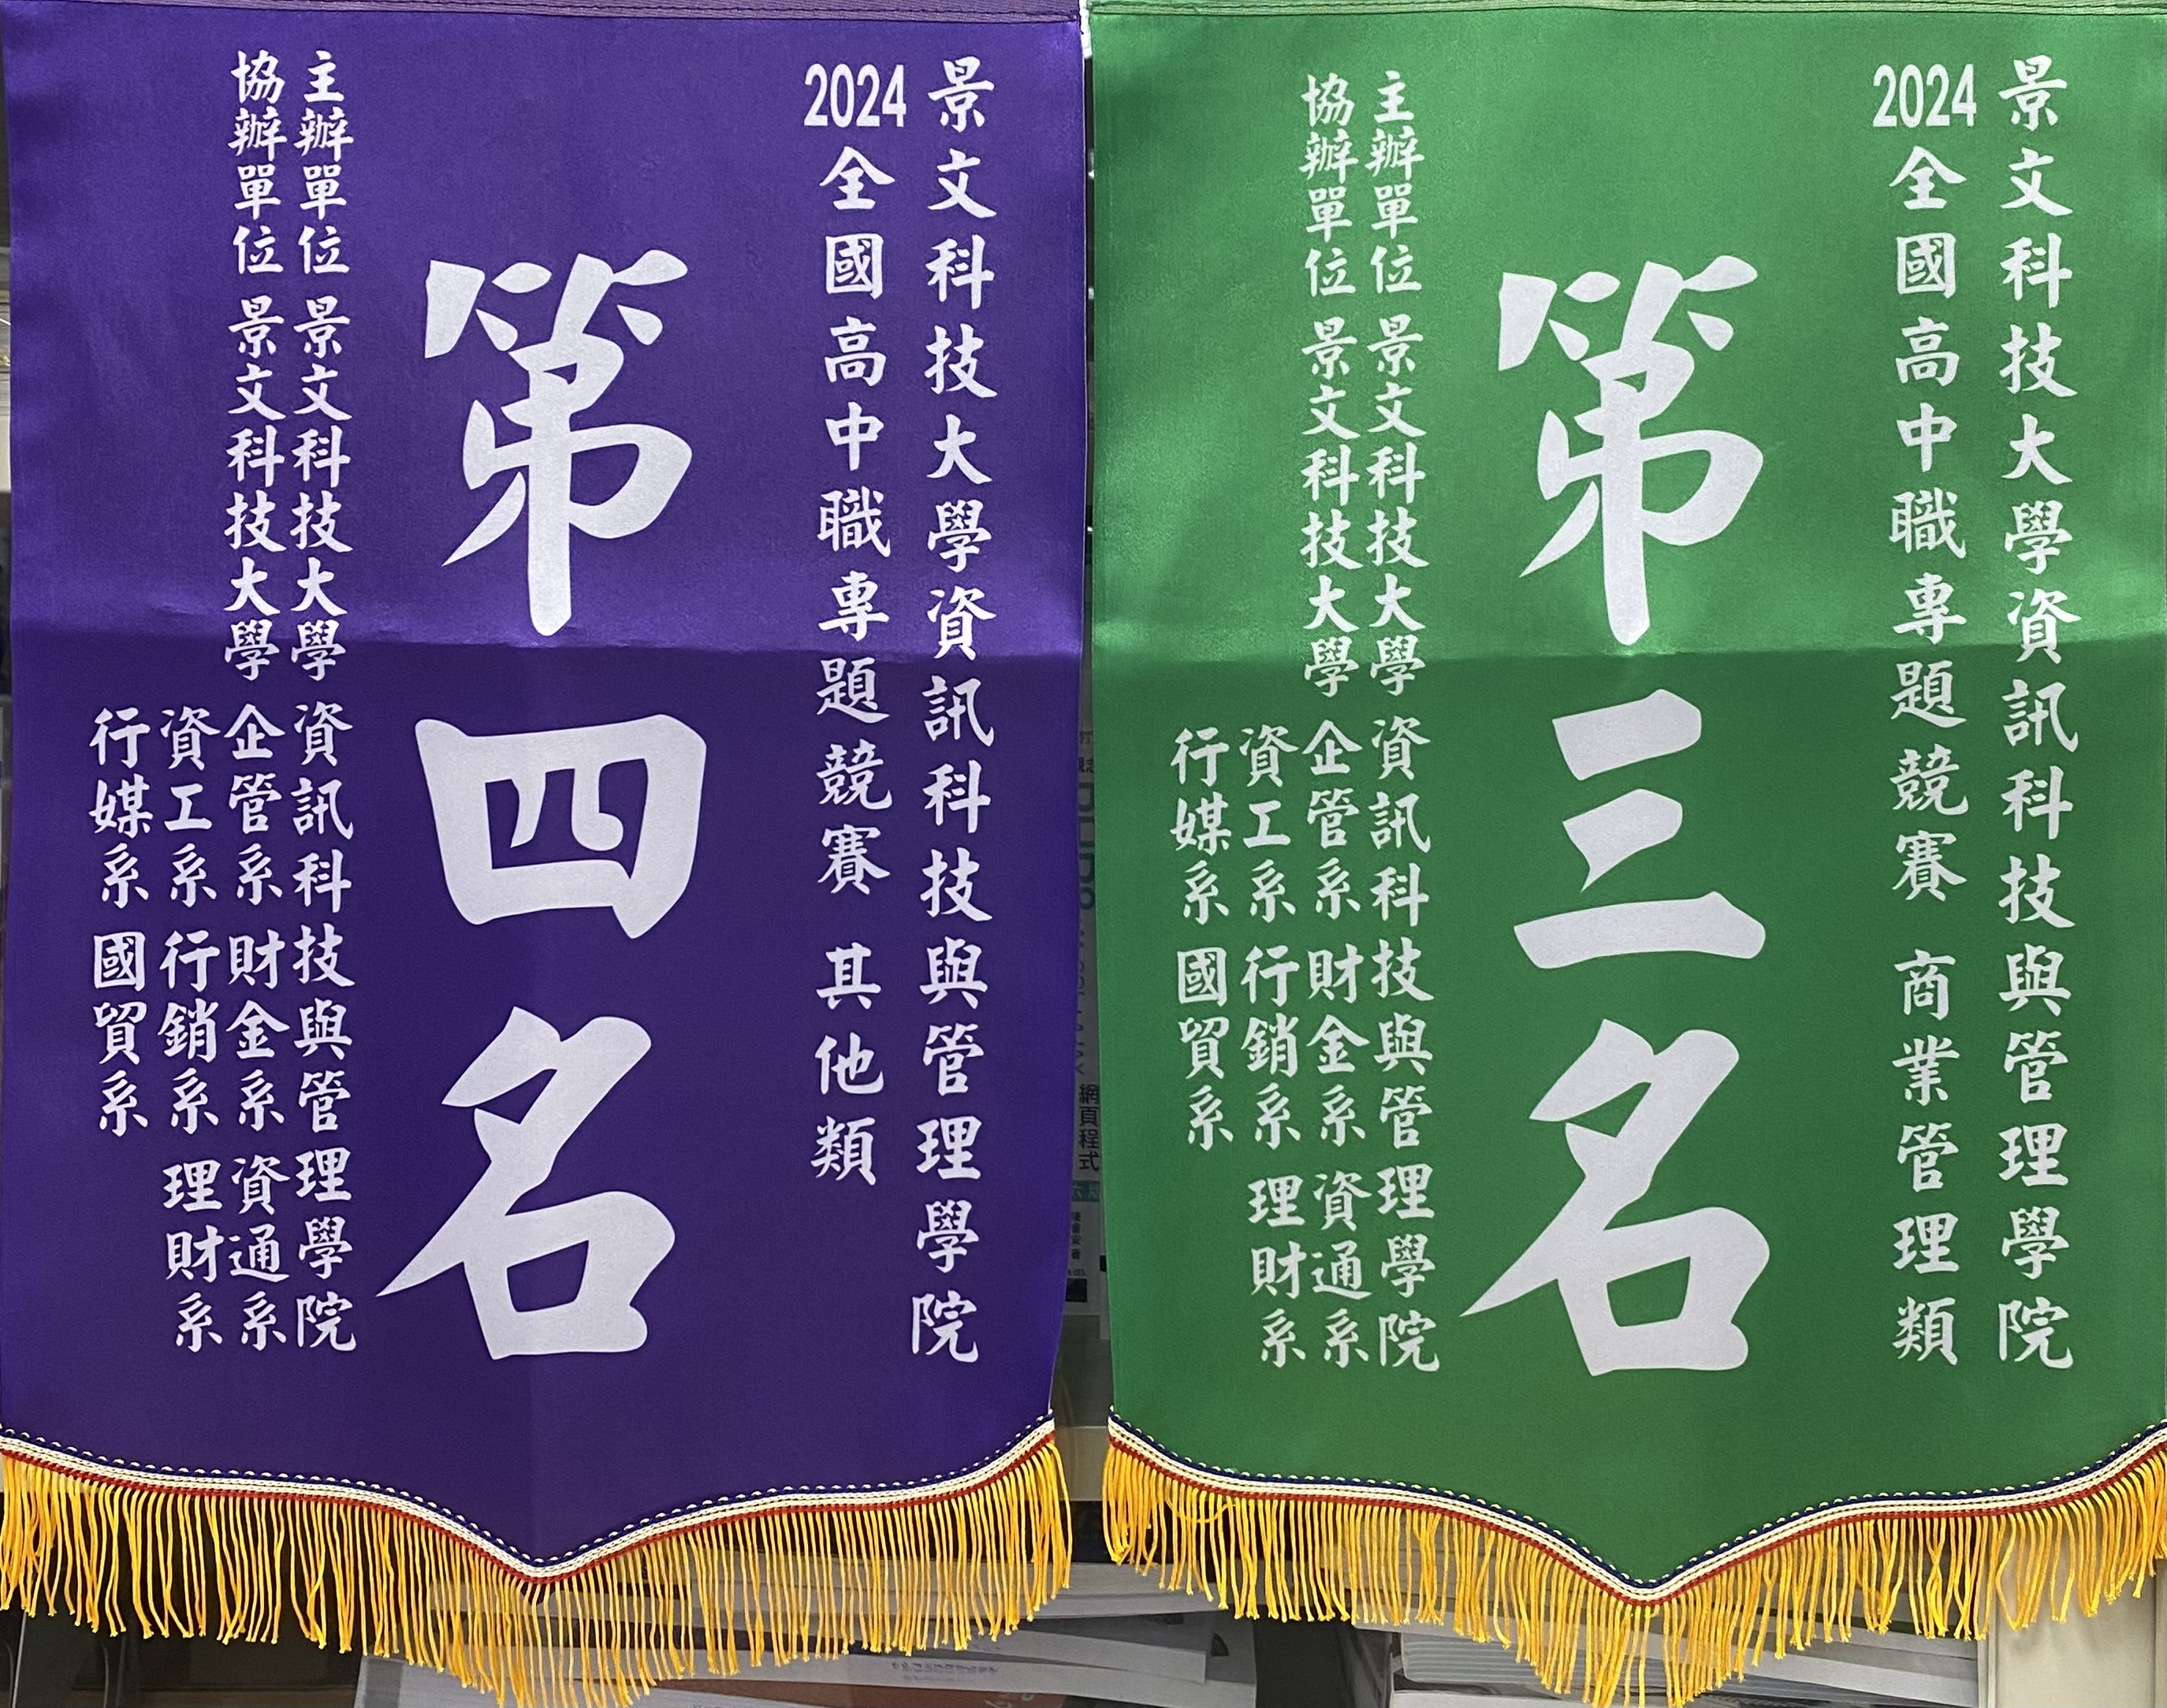 景文科技大學資訊科技與管理學院
2024全國高中職專題競賽 商業管理類
第三名
主辦單位 景文科技大學 資訊科技與管理學院
協辦單位 景文科技大學 企管系 財金系 資通系
資工系 行銷系 理財系
行媒系 國貿系
景文科技大學資訊科技與管理學院
2024全國高中職專題競賽 其他類
第四名
主辦單位 景文科技大學 資訊科技與管理學院
協辦單位 景文科技大學 企管系 財金系 資通系
資工系 行銷系 理財系
行媒系 國貿系
網頁程式